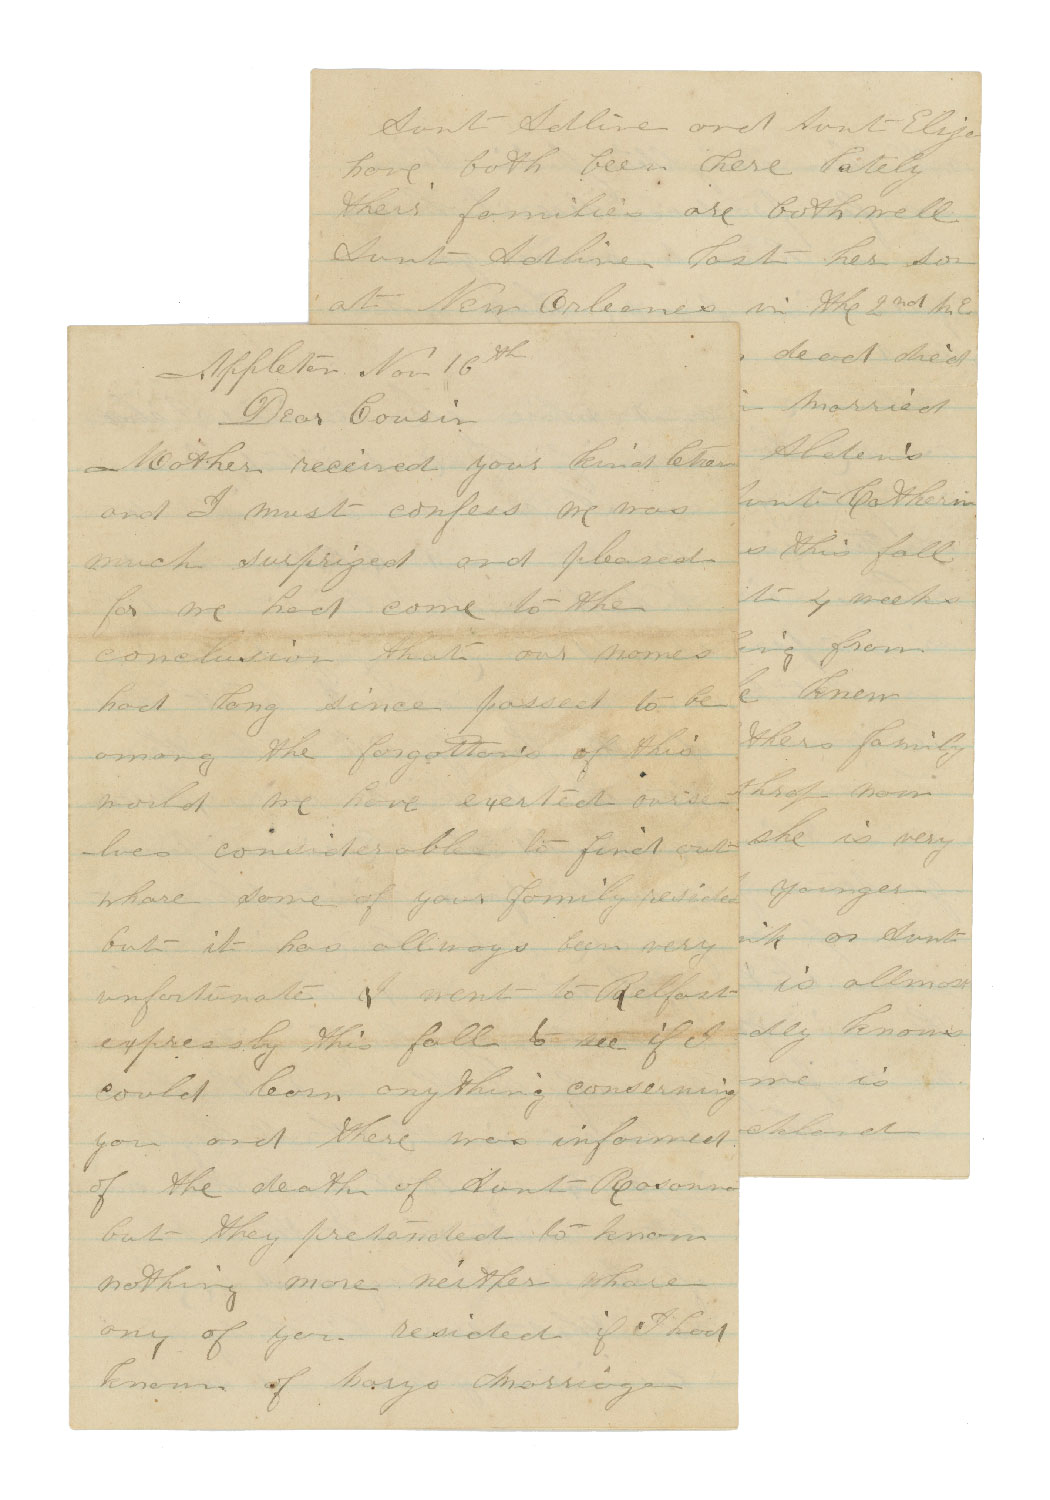 Appleton Nov 16th
Dear Cousin
Mother received your kind letter
and I must confess we was
much surprized and pleased
for we had come to the
conclusion that our names
had long since passed to be
among the forgotten's of this
world we have exerted ourse
-lves considerable to find out
whare some of your family resided
but it has allways been very
unfortunate I went to Belfast
expressly this fall to see if I
could learn anything conserning
you and there was informed
of the death of Aunt Rosanna
but they pretended to know
nothing more neither whare
any of you resided if I had
known of Marys Marriage
Aunt Adline and Aunt Eliza
have both been here lately
their families are both well
Aunt Adline lost her son
at New Orleanes in the 2nd M.E.
dead died
married
Alden's
unt Catherin
s this fall
4 weeks
ing from
knew
thers family
throp now
she is very
younger
as Aunt
is allmost
dly knows
me is
ckland